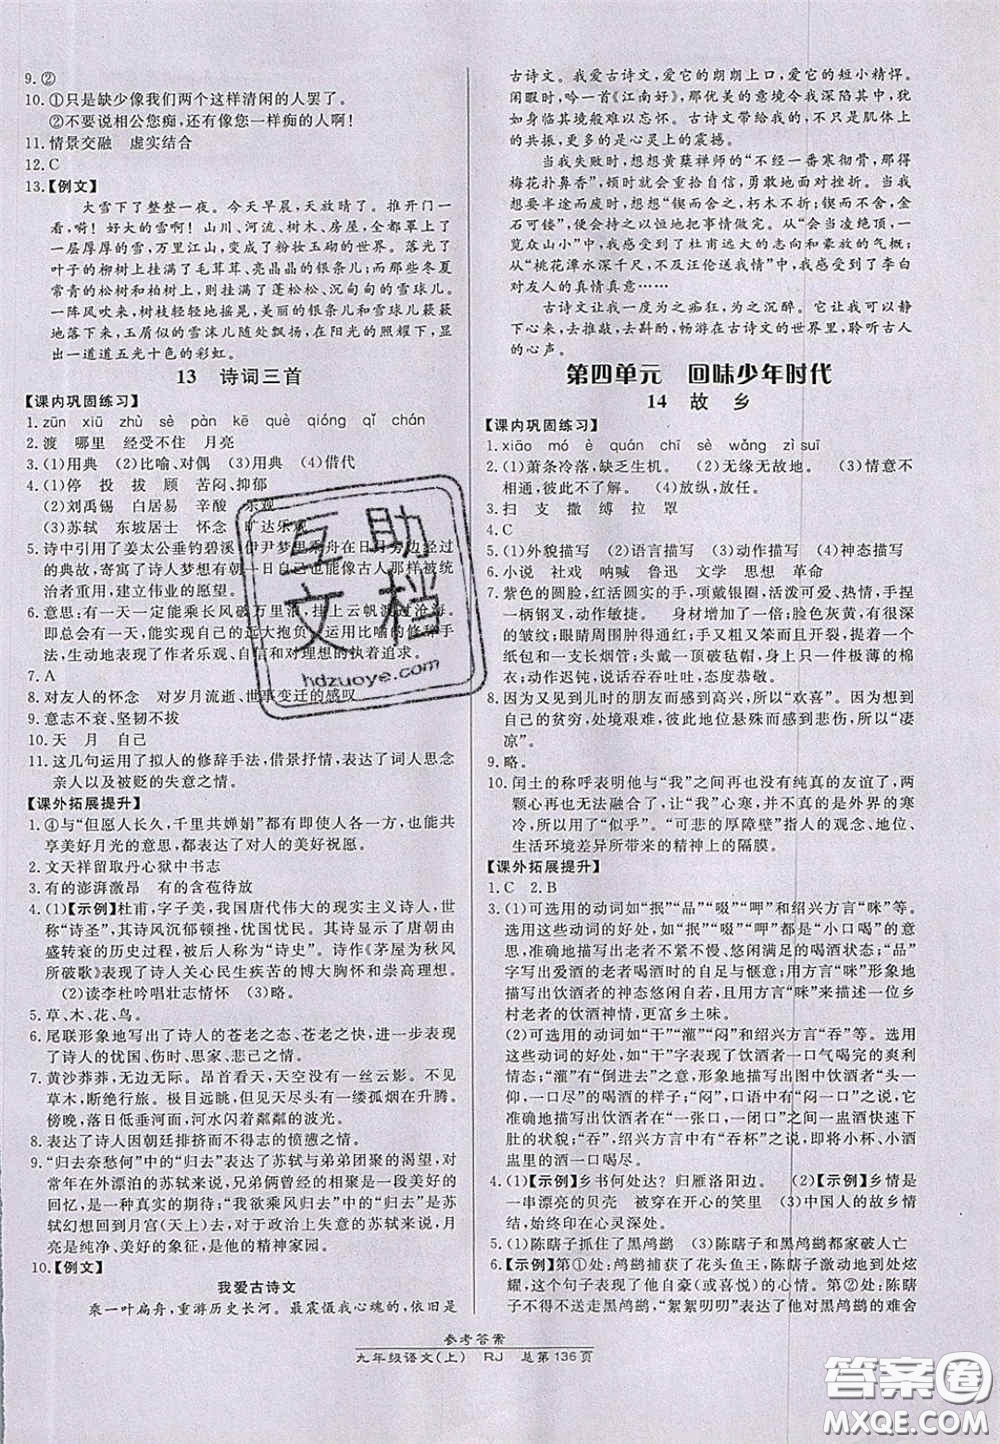 9.②
10.①只是缺少像我们两个这样清闲的人罢了。
②不要说相公您痴,还有像您一样痴的人啊!
11.情景交融 虚实结合
12.C
13.【例文】
大雪下了整整一夜。今天早晨,天放晴了。推开门一
看,嗬!好大的雪啊!山川、河流、树木、房屋,全都罩上了
一层厚厚的雪,万里江山,变成了粉妆玉砌的世界。落光了
叶子的柳树上挂满了毛茸茸、亮晶晶的银条儿;而那些冬夏
常青的松树和柏树上,则挂满了蓬松松、沉甸甸的雪球儿。
一阵风吹来,树枝轻轻地摇晃,美丽的银条儿和雪球儿簌簌
地落下来,玉屑似的雪沫儿随处飘扬,在阳光的照耀下,显
出一道道五光十色的彩虹。
13 诗词三首
【课内巩固练习】
1.zūn xiū zhù sè pàn kē què qióng qǐ chán
2.渡 哪里 经受不住 月亮
3.(1)用典 (2)比喻、对偶 (3)用典 (4)借代
4.(1)停 投 拔 顾 苦闷、抑郁
(2)刘禹锡 白居易 辛酸 乐观
(3)苏轼 东坡居士 怀念 旷达乐观
5.诗中引用了姜太公垂钓碧溪,伊尹梦里乘舟在日月旁边经过
的典故,寄寓了诗人梦想有朝一日自己也能像古人那样被统
治者重用,建立伟业的愿望。
6.意思:有一天一定能乘长风破万里浪,挂上云帆渡过沧海。
即总会有一天,能实现自己的远大抱负。运用比喻的修辞手
法,生动地表现了作者乐观、自信和对理想的执着追求。
7.A
8.对友人的怀念 对岁月流逝、世事变迁的感叹
9.意志不衰、坚韧不拔
10.天 月 自己
11.这几句运用了拟人的修辞手法,借景抒情,表达了词人思念
亲人以及被贬的失意之情。
【课外拓展提升】
1.④与“但愿人长久,千里共婵娟”組合在一起,大意是:各人虽各在一方,也能共
2.文天祥留取丹心狱中书志
3.有的澎湃激昂 有的含苞待放
4.(1)【示例】杜甫,字子美,我国唐代伟大的现实主义诗人,世
称“诗圣”,其诗风沉郁顿挫,忧国忧民。其诗显示了唐代由
盛转衰的历史过程,被后人称为“诗史”。诗作《茅屋为秋风
所破歌》表现了诗人关心民生疾苦的博大胸怀和崇高理想。
(2)读李杜吟唱壮志情怀 (3)略。
5.草、木、花、鸟。
6.尾联形象地写出了诗人的苍老之态、苍老之状,进一步表现
了诗人的忧国、伤时、思家之情。
7.黄沙莽莽,无边无际。昂首看天,天空没有一丝云影。不见
草木,断绝行旅。极目远眺,但见天尽头有一缕孤烟在升腾。
傍晚,落日低垂河面,河水闪着粼粼的波光。
8.表达了诗人因朝廷排挤而不得志的愤懑之情。
9.“归去奈愁何”中的“归去”表达了苏轼与弟弟团聚的渴望,对
常年在外漂泊的苏轼来说,兄弟俩曾经的相聚是一种美好的
回忆,也是一种真实的期待;“我欲乘风归去”中的“归去”是苏
轼幻想回到月宫(天上)中去,对于政治上失意的苏轼来说,月
亮是纯净、美好的象征,是他的精神家园。
10.【例文】
我爱古诗文
乘一叶扁舟,重游历史长河。最震慑我心魂的,依旧是
古诗文。我爱古诗文,爱它的朗朗上口,爱它的短小精悍。
闲暇时,吟一首《江南好》,那优美的意境令我深陷其中,
犹如身临其境,久久难以忘怀。古诗文带给我的,不只是享
受,更多的是心灵上的震撼。
当我失败时,想想黄蘖禅师的“不经一番寒彻骨,那得
梅花扑鼻香”,我就会重拾自信,勇敢地面对挫折。当我
想要半途而废时,想想“锲而舍之,朽木不折;锲而不舍,金
石可镂”,便会持之以恒地把事情做完。从“会当凌绝顶,一
览众山小”中,我感受到了杜甫远大的志向和豪放的气概;
从“桃花潭水深千尺,不及汪伦送我情”中,我感受到了李白
对友人的真情真意……
古诗文让我一度为之痴狂,为之沉醉。它让我可以静
下心来,去推敲,去斟酌,畅游在古诗文的世界里,聆听古人
的心声。
第四单元 回味少年时代
14 故乡
【课内巩固练习】
1.xiāo mó è quán chī sè wǎng zì suī
2.(1)萧条冷落,缺乏生机。 (2)无缘无故地。 (3)情意不
相通,彼此(情意)隔膜。 (4)放纵,放任。
3.扫 支 撒 缚 拉 罩
4.C
5.(1)外貌描写 (2)语言描写 (3)动作描写 (4)神态描写
6.小说 社戏 呐喊 鲁迅 文学 思想 革命
7.紫色的圆脸,红活圆实的手,项戴银圈,活泼可爱,热情,手捏
一柄钢叉,动作敏捷。 身材增加了一倍;脸色灰黄,有很深
的皱纹;眼睛周围肿得通红;手又粗又笨而且开裂;提着一个
纸包和一支长烟管;头戴一顶破毡帽,身上只一件极薄的棉
衣;动作迟钝,说话吞吞吐吐,态度恭敬。
8.因为又见到儿时的朋友而感到高兴,所以“欢喜”。因为想到
自己的贫穷,处境艰难,彼此地位悬殊而感到悲伤,所以“凄
凉”。
9.略。
10.闰土的称呼表明他与“我”之间再也没有纯真的友谊了,两
颗心再也无法融合了,让“我”心寒,并不真的是外界的寒
冷,所以用了“似乎”。“可悲的厚障壁”指人的观念、地位、
生活环境差异所带来的精神上的隔膜。
【课外拓展提升】
1.C 2.B
3.(1)可选用的动词如“抿”“品”“啜”“呷”和绍兴方言“咪”等。
选用这些动词的好处,如“抿”字表现了“小口喝”的意思,
准确地描写出老者不紧不慢、悠闲满足的喝酒状态;“品”字
生动地描写出爱酒的老者喝酒时的自足与惬意;方言“咪”形象地
描写出饮酒者的神态悠然,用方言“咪”写出了一位乡
村老者的饮酒神情,更富乡土味。
(2)可选用的动词如“干”“灌”“闷”和绍兴方言“吞”等。选用
这些动词的好处,如“干”字表现了饮酒者一口气喝完的爽利
情态;“灌”有“倒进去”的意思,形象地描写出图中饮酒者“一
仰,一口尽”的喝酒的样子;“闷”,口在门中,形象、
准确地描写出饮酒者在“一张口,一闭口”之间一盅酒便快速下
肚的情状;“吞”,绍兴方言中有“吞杯”之说,即小杯、小酒
盅里的酒一口喝尽。
4.(1)【示例】乡书何处达?归雁洛阳边。 (2)【示例】乡情是
一串漂亮的贝壳 被穿在开心的笑里 (3)中国人的故乡情
结,始终沉在心灵深处。
5.(1)陈瞎子抓住了黑鸬鹚 (3)陈瞎子和黑鸬鹚都家破人亡
6.【示例】第①处:鸬鹚捕获了花头鱼王,陈瞎子激动地到处炫
耀,这个句子表现了他自豪(或喜悦)的心情。第②处:陈瞎
子不得不送走黑鸬鹚,“絮絮叨叨”表达了他对黑鸬鹚的难舍
参考答案
九年级语文(上) RJ 总第136页
互助文档
hdzuoye.com
答案圈
MXQE.COM